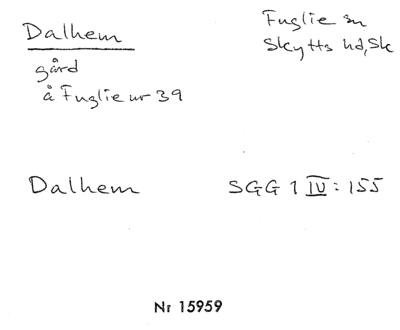 Dalhem
Fuglie sn
Skytts hd, Sk
gård
å Fuglie nr 39
Dalhem
SGG 1 IV: 155
Nr 15959